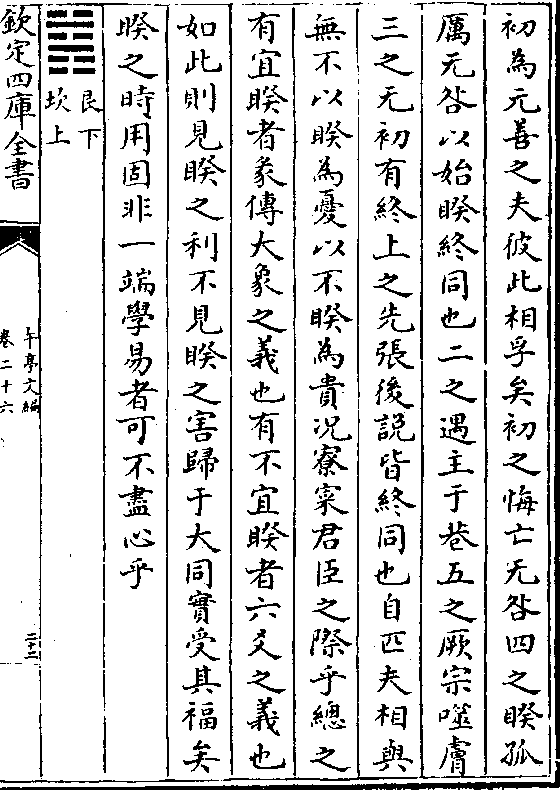 初為元善之夫彼此相孚矣初之悔亡无咎四之睽孤
厲无咎以始睽終同也二之遇主于巷五之厥宗噬膚
三之无初有終上之先張後説皆終同也自匹夫相與
無不以睽為憂以不睽為貴况寮寀君臣之際乎總之
有宜睽者彖傳大象之義也有不宜睽者六爻之義也
如此則見睽之利不見睽之害歸于大同實受其福矣
睽之時用固非一端學易者可不盡心乎
艮下
坎上
欽定四庫全書
午亭文編
卷二十六
二十二